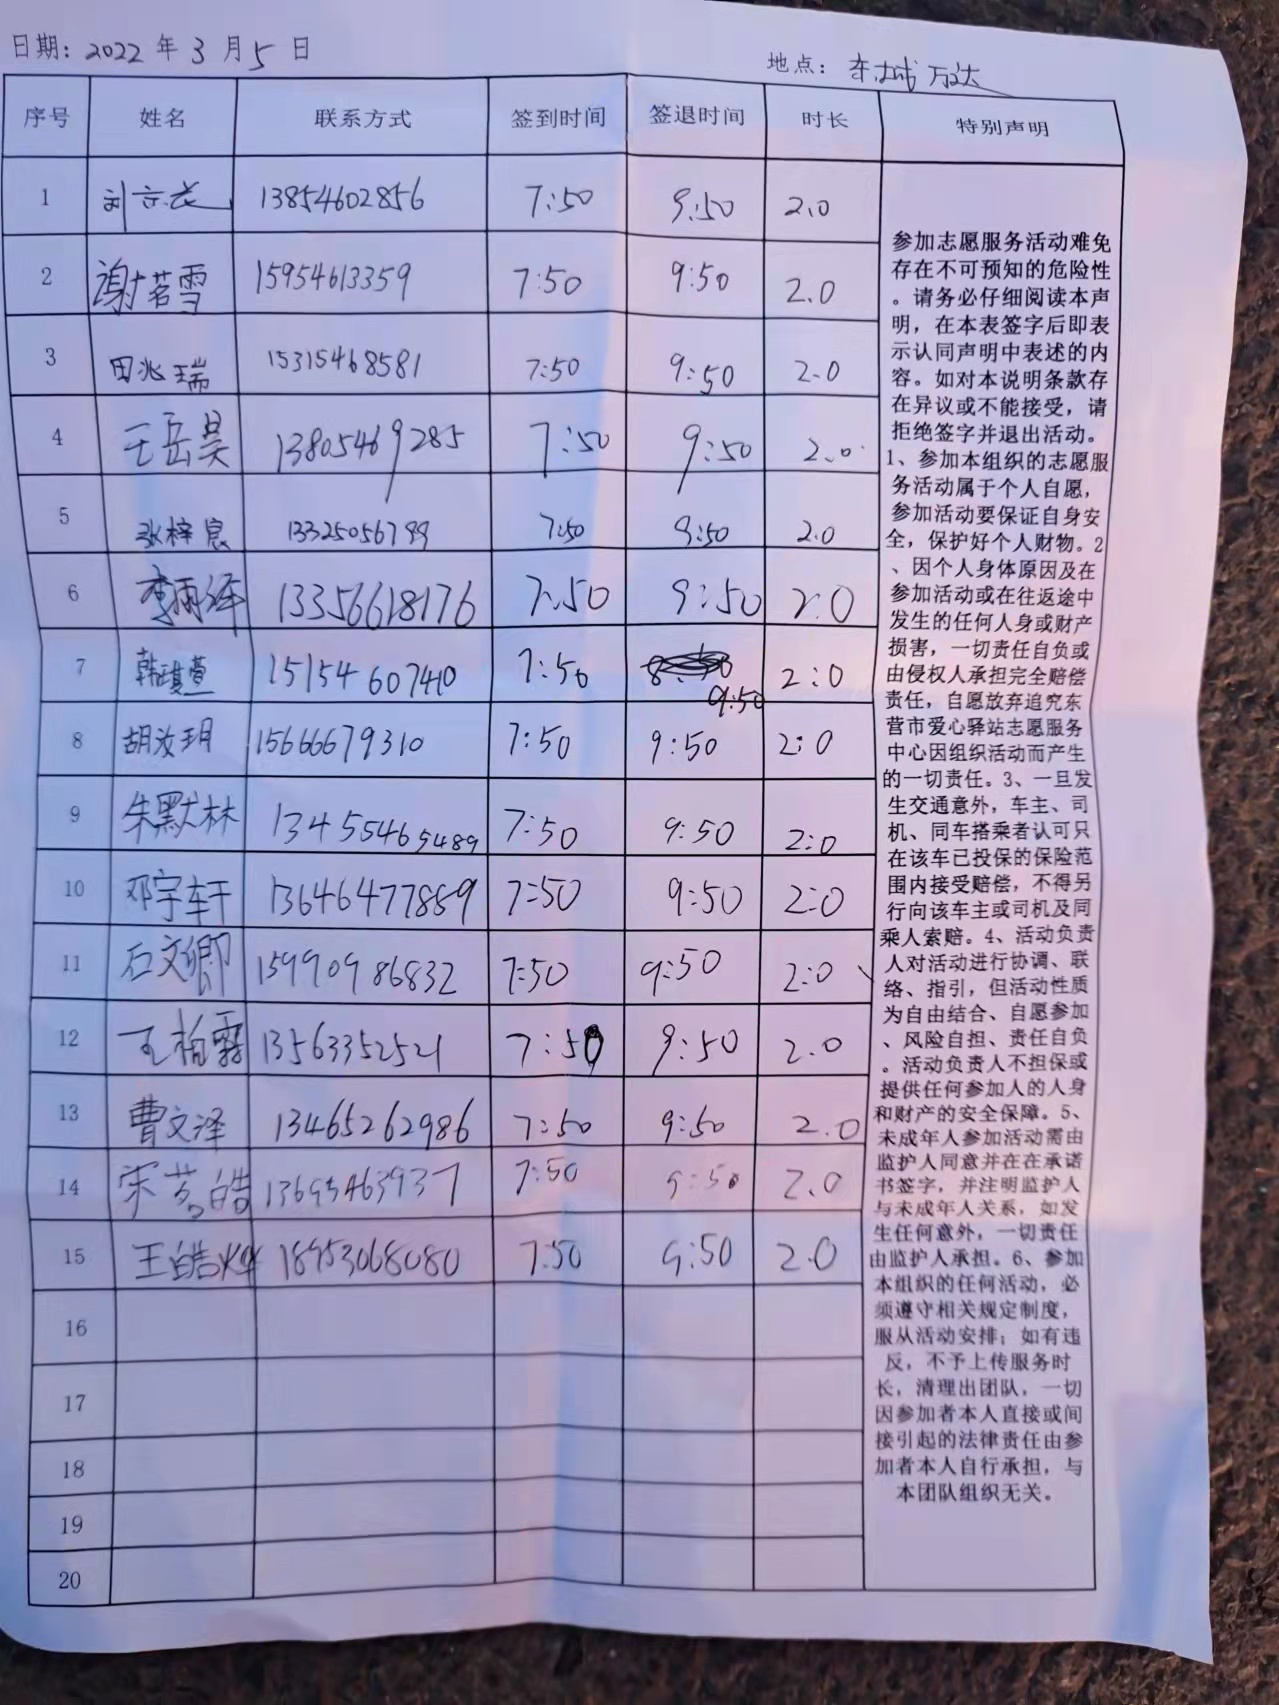 日期：2022年3月5日
地点：东城万达
序号 姓名 联系方式 签到时间 签退时间 时长 特别声明
1 刘 13854602856 7:50 9:50 2.0
2 谢茗雪 15954613359 7:50 9:50 2.0
3 田兆瑞 15315468581 7:50 9:50 2.0
4 王岳昊 13805469285 7:50 9:50 2.0
5 张梓宸 13325056799 7:50 9:50 2.0
6 李雨泽 13356618176 7:50 9:50 2.0
7 韩琪萱 15154607410 7:50 9:50 2:0
8 胡汝玥 15666679310 7:50 9:50 2:0
9 朱默林 13455465489 7:50 9:50 2:0
10 邓宇轩 13646477859 7:50 9:50 2:0
11 石文卿 15990986832 7:50 9:50 2:0
12 王柏霖 13563352521 7:50 9:50 2.0
13 曹文泽 13465262986 7:50 9:50 2.0
14 宋艺皓 13695463937 7:50 9:50 2.0
15 王皓烨 18953068080 7:50 9:50 2.0
16
17
18
19
20
参加志愿服务活动难免
存在不可预知的危险性
。请务必仔细阅读本声
明，在本表签字后即表
示认同声明中表述的内
容。如对本说明条款存
在异议或不能接受，请
拒绝签字并退出活动。
1、参加本组织的志愿服
务活动属于个人自愿，
参加活动要保证自身安
全，保护好个人财物。2
、因个人身体原因及在
参加活动或在往返途中
发生的任何人身或财产
损害，一切责任自负或
由侵权人承担完全赔偿
责任，自愿放弃追究东
营市爱心驿站志愿服务
中心因组织活动而产生
的一切责任。3、一旦发
生交通意外，车主、司
机、同车搭乘者认可只
在该车已投保的保险范
围内接受赔偿，不得另
行向该车主或司机及同
乘人索赔。4、活动负责
人对活动进行协调、联
络、指引，但活动性质
为自由结合、自愿参加
、风险自担、责任自负
。活动负责人不担保或
提供任何参加人的人身
和财产的安全保障。5、
未成年人参加活动需由
监护人同意并在在承诺
书签字，并注明监护人
与未成年人关系，如发
生任何意外，一切责任
由监护人承担。6、参加
本组织的任何活动，必
须遵守相关规定制度，
服从活动安排；如有违
反，不予上传服务时
长，清理出团队，一切
因参加者本人直接或间
接引起的法律责任由参
加者本人自行承担，与
本团队组织无关。